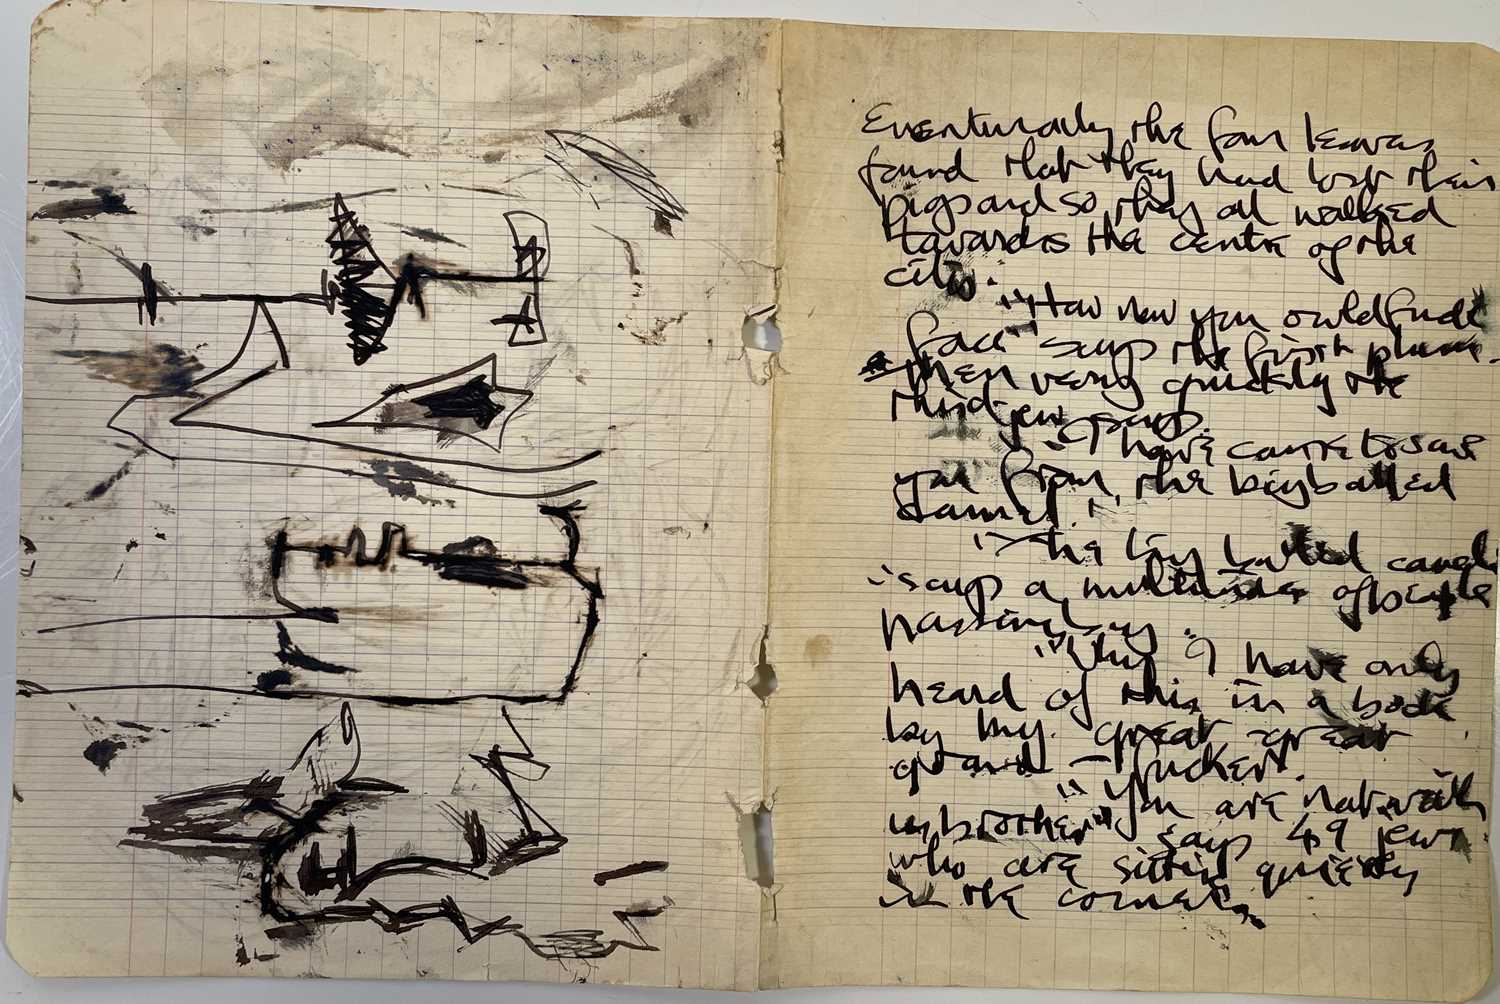 Eventually the four
found that they had lost their
pigs and so they all walked
towards the centre of the
city.
"How now you owld
face" says the first
then very quickly the
third jew says.
"I have come to save
you from the big balled
camel."
"The big balled camel"
says a multitude of people
passing by.
"Why I have only
heard of this in a book
by my great-great
grand-fucker.
"You are not
my brother" says 49 jews
who are sitting quietly
in the corner.